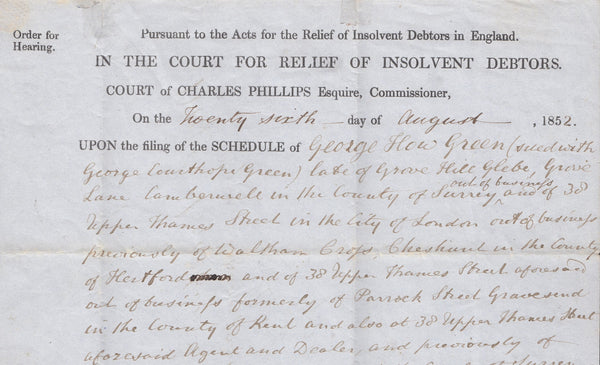 Order for
Hearing.
Pursuant to the Acts for the Relief of Insolvent Debtors in England.
IN THE COURT FOR RELIEF OF INSOLVENT DEBTORS.
COURT OF CHARLES PHILLIPS Esquire, Commissioner,
On the Twenty sixth day of August, 1852.
UPON the filing of the SCHEDULE of George How Green (sued with
George Courthope Green) late of Grove Hill Glebe, Grove
out of business
Lane Camberwell in the County of Surrey and of 38
Upper Thames Street in the City of London out of business
previously of Waltham Cross, Cheshunt in the County
of Hertford and of 38 Upper Thames Street aforesaid
out of business formerly of Parrock Street Gravesend
in the County of Kent and also at 38 Upper Thames Street
aforesaid Agent and Dealer, and previously of